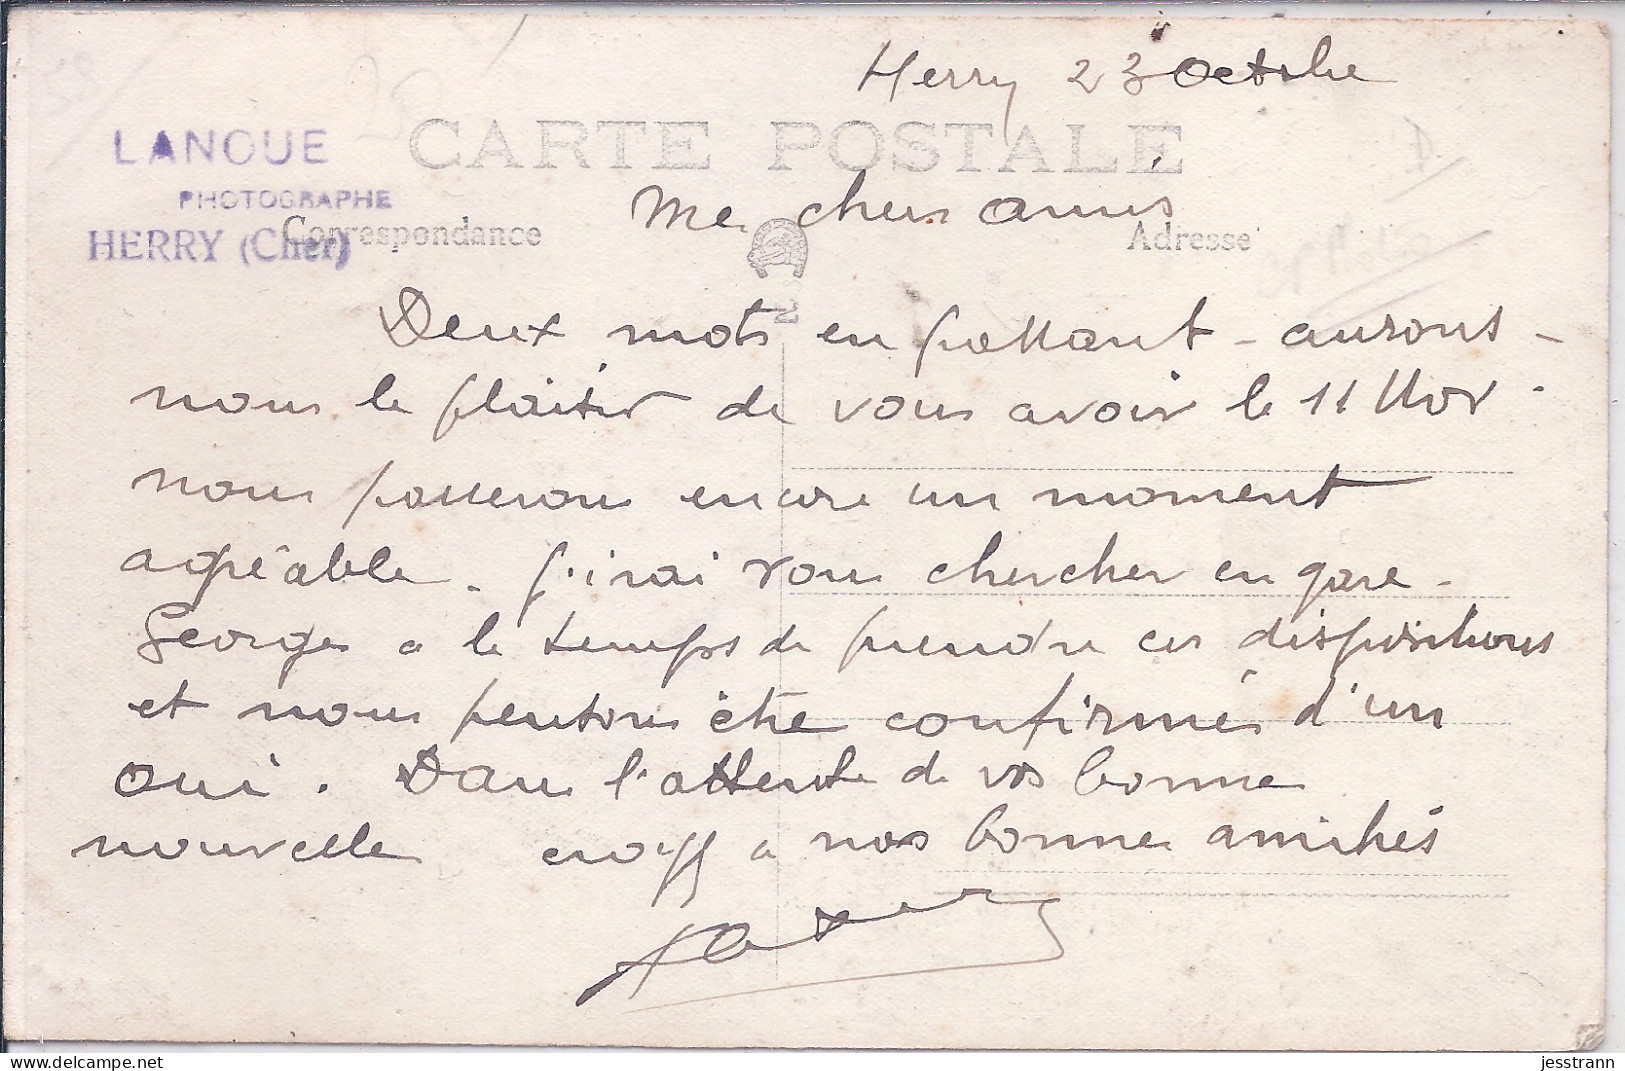 Herry 23 Octobre
LANOUE
CARTE POSTALE
PHOTOGRAPHE
Me chers amis
Correspondance
Adresse
HERRY (Cher)
Deux mots en passant - aurons -
nous le plaisir de vous avoir le 11 Nov.
nous passerons encore un moment
agréable. j'irai vous chercher en gare -
Georges a le temps de prendre ces dispositions
et nous pensons être confirmés d'un
oui. Dans l'attente de vos bonnes
nouvelles croyez a nos bonnes amitiés
jesstrann